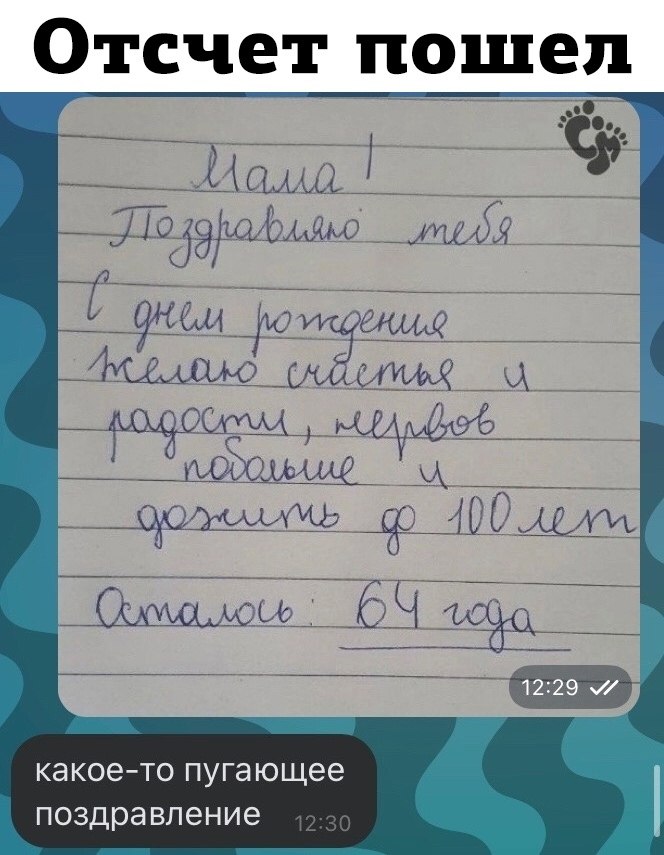 Отсчет пошел
СМ
Мама!
Поздравляю тебя
С днем рождения
желаю счастья и
радости, нервов
побольше и
дожить до 100 лет
Осталось: 64 года
12:29
какое-то пугающее
поздравление 12:30